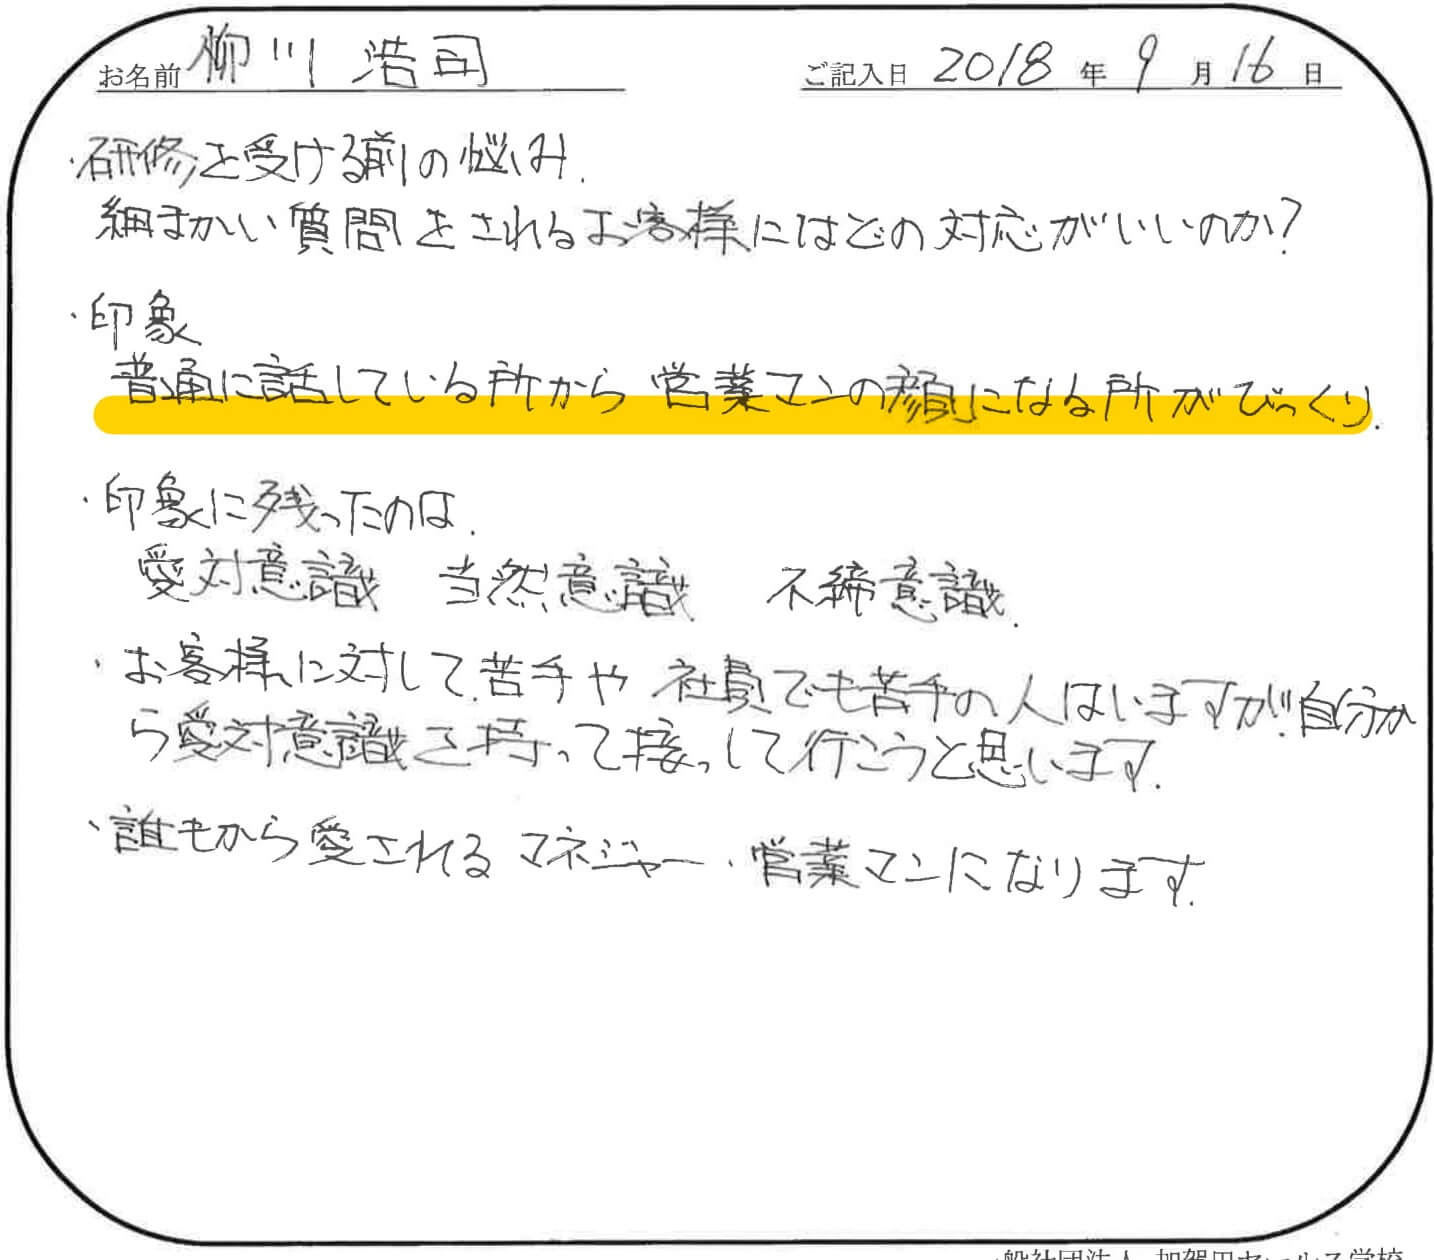 お名前 柳川 浩司 ご記入日 2018 年 9 月 16 日
・研修を受ける前の悩み.
細まかい質問をされるお客様にはどの対応がいいのか?
・印象
普通に話している所から 営業マンの顔になる所がびっくり.
・印象に残ったのは.
愛対意識 当然意識 不締意識.
・お客様に対して.苦手や 社員でも苦手の人はいますが.自分か
ら愛対意識を持って接っして行こうと思います.
・誰もから愛されるマネジャー・営業マンになります.
一般社団法人 加賀田セールス学校